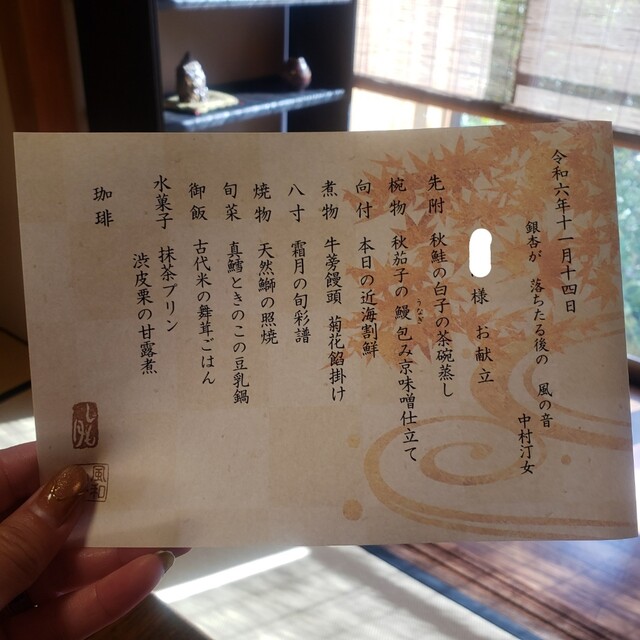 令和六年十一月十四日
銀杏が 落ちたる後の 風の音
中村汀女
様 お献立
先附 秋鮭の白子の茶碗蒸し
椀物 秋茄子の鰻包み京味噌仕立て
うなぎ
向付 本日の近海割鮮
煮物 牛蒡饅頭 菊花餡掛け
八寸 霜月の旬彩譜
焼物 天然鰤の照焼
旬菜 真鱈ときのこの豆乳鍋
御飯 古代米の舞茸ごはん
水菓子 抹茶プリン
渋皮栗の甘露煮
珈琲
しも月
風和